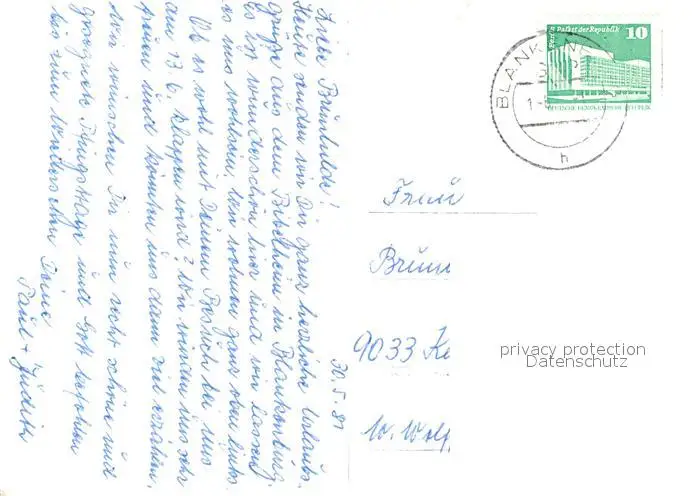 30.5.81
Liebe Brünhilde!
Heute senden wir Dir ganz herzliche Urlaubs-
grüße aus dem Bibelheim in Blankenburg.
Es ist wunderschön hier und wir lassen
es uns wohlsein, wir wohnen ganz oben links.
Ob es wohl mit Deinem Besuch bei uns
am 13.6. klappen wird? Wir würden uns sehr
freuen und könnten uns dann viel erzählen.
Wir wünschen Dir nun recht schöne und
gesegnete Pfingsttage und Gott befohlen
bis zum Wiedersehn Deine
Paul + Judith
Frau
Brün
9033 Ke
W. Wolf
Berlin Palast der Republik 10
DEUTSCHE DEMOKRATISCHE REPUBLIK
BLANKEN
h
privacy protection
Datenschutz